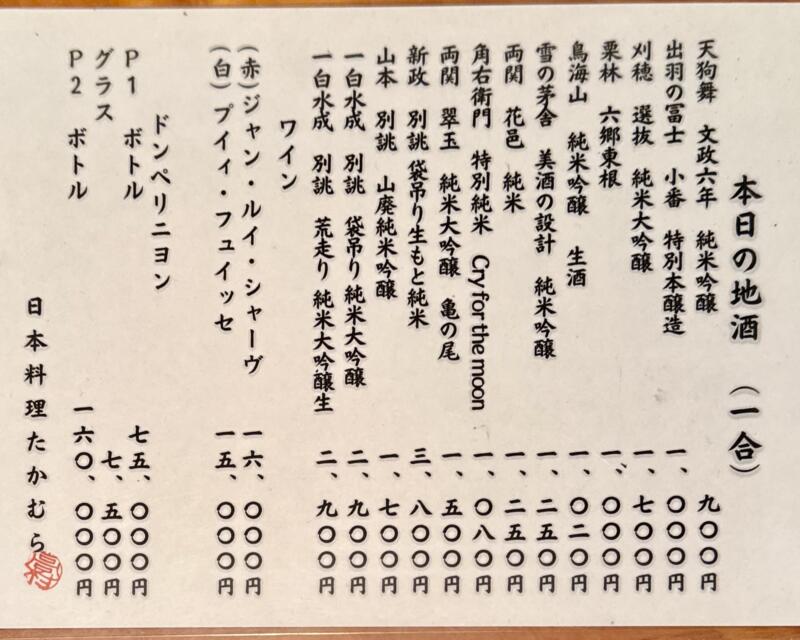 本日の地酒 (一合)
天狗舞 文政六年 純米吟醸 九〇〇円
出羽の冨士 小番 特別本醸造 一、〇〇〇円
刈穂 選抜 純米大吟醸 一、七〇〇円
栗林 六郷東根 一、〇〇〇円
鳥海山 純米吟醸 生酒 一、〇二〇円
雪の茅舎 美酒の設計 純米吟醸 一、二五〇円
両関 花邑 純米 一、二五〇円
角右衛門 特別純米 Cry for the moon 一、〇八〇円
両関 翠玉 純米大吟醸 亀の尾 一、五〇〇円
新政 別誂 袋吊り生もと純米 三、八〇〇円
山本 別誂 山廃純米吟醸 一、七〇〇円
一白水成 別誂 袋吊り純米大吟醸 二、九〇〇円
一白水成 別誂 荒走り純米大吟醸生 二、九〇〇円
ワイン
(赤)ジャン・ルイ・シャーヴ 一六、〇〇〇円
(白)プイィ・フュイッセ 一五、〇〇〇円
ドンペリニヨン
P1 ボトル 七五、〇〇〇円
グラス 七、五〇〇円
P2 ボトル 一六〇、〇〇〇円
日本料理たかむら